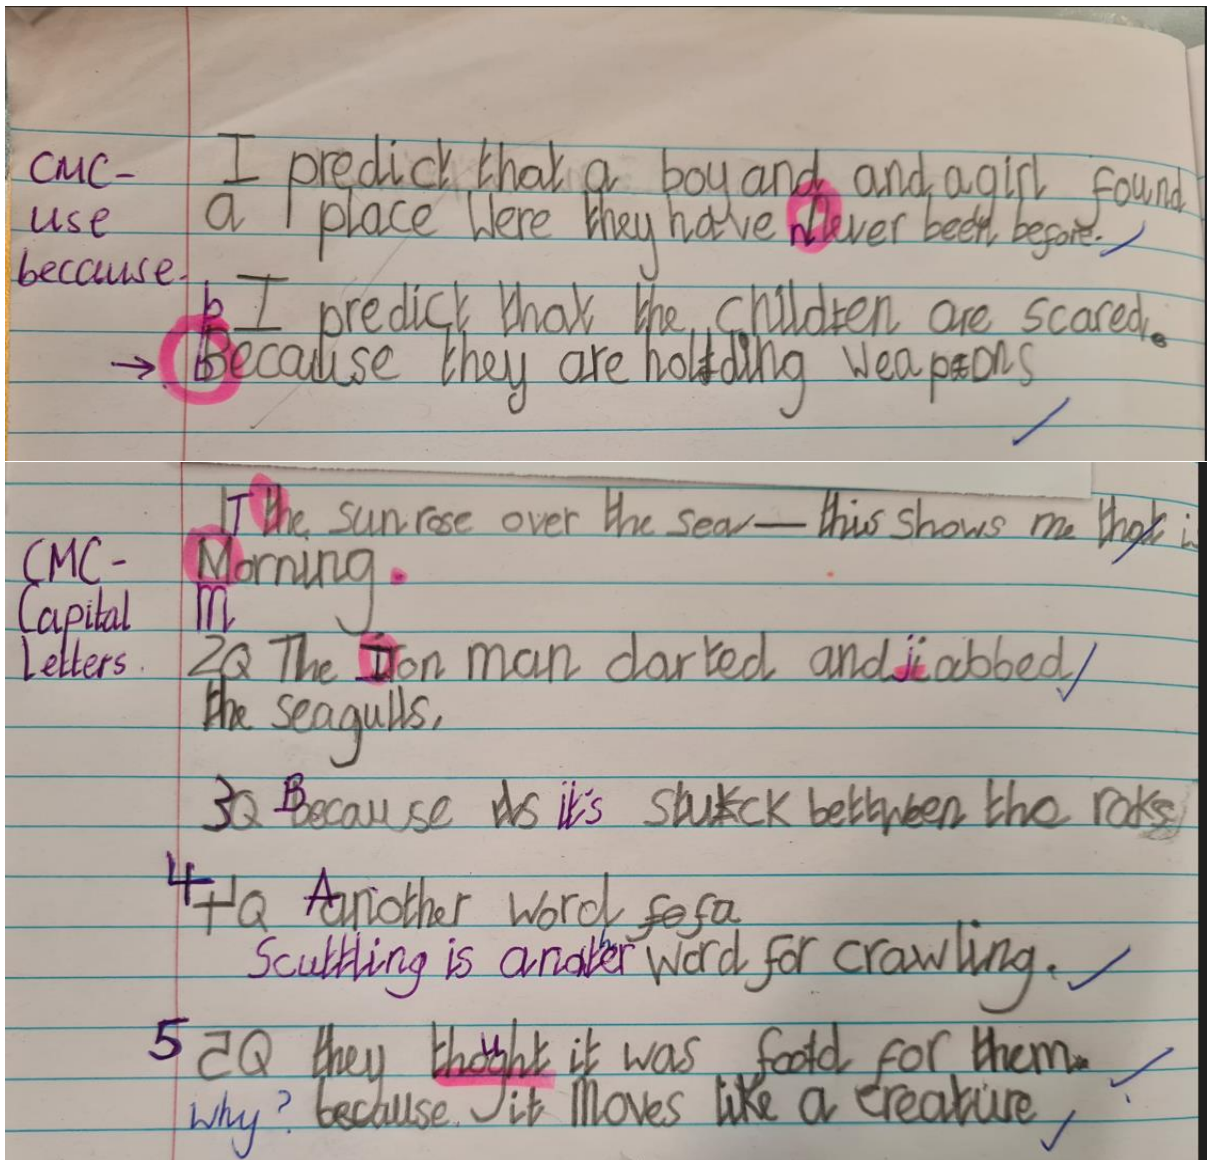 CMC- I predict that a boy and and a girl found
use a place Were they have Never been before.
because.
b I predict that the children are scared.
→ Because they are holding weapons
T the sun rose over the sea — this shows me that i
CMC- Morning.
Capital M
Letters. 2Q The Iron man darted and jabbed
the seagulls.
3Q Because its it's stuck bettween the roks
4 4Q Another word fo fa
Scuttling is another word for crawling.
5 5Q they thought it was food for them.
why? because it moves like a creature